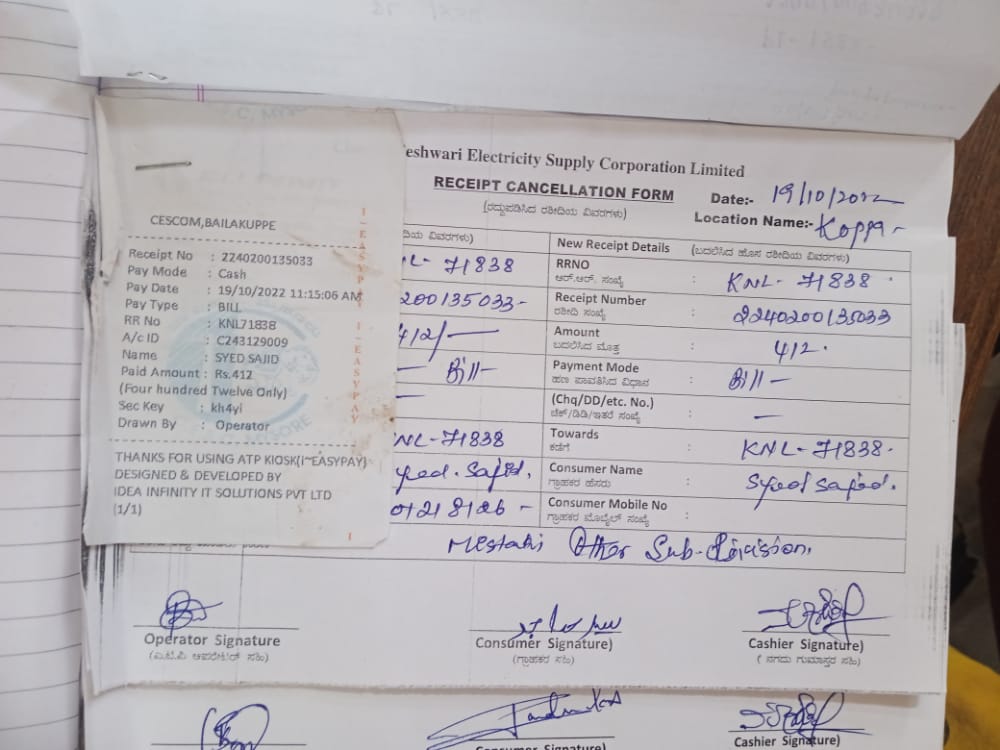 CESCOM,BAILAKUPPE
Receipt No : 2240200135033
Pay Mode : Cash
Pay Date : 19/10/2022 11:15:06 AM
Pay Type : BILL
RR No : KNL71838
A/c ID : C243129009
Name : SYED SAJID
Paid Amount : Rs.412
(Four hundred Twelve Only)
Sec Key : kh4yi
Drawn By : Operator
THANKS FOR USING ATP KIOSK(i~EASYPAY)
DESIGNED & DEVELOPED BY
IDEA INFINITY IT SOLUTIONS PVT LTD
(1/1)
eshwari Electricity Supply Corporation Limited
RECEIPT CANCELLATION FORM
(ರದ್ದುಪಡಿಸಿದ ರಶೀದಿಯ ವಿವರಗಳು)
Date:- 19/10/2022
Location Name:- Koppa -
ದಿಯ ವಿವರಗಳು) New Receipt Details (ಬದಲಿಸಿದ ಹೊಸ ರಶೀದಿಯ ವಿವರಗಳು)
L- 71838 RRNO : KNL- 71838
ಆರ್.ಆರ್. ಸಂಖ್ಯೆ
200135033- Receipt Number : 2240200135033
ರಶೀದಿ ಸಂಖ್ಯೆ
412/- Amount : 412.
ಬದಲಿಸಿದ ಮೊತ್ತ
- Bill- Payment Mode : Bill -
ಹಣ ಪಾವತಿಸಿದ ವಿಧಾನ
- (Chq/DD/etc. No.) : -
ಚೆಕ್/ಡಿಡಿ/ಇತರೆ ಸಂಖ್ಯೆ
NL-71838 Towards : KNL-71838.
ಕಡೆಗೆ
yed. Sajid, Consumer Name : Syed Sajid.
ಗ್ರಾಹಕರ ಹೆಸರು
01218126 - Consumer Mobile No :
ಗ್ರಾಹಕರ ಮೊಬೈಲ್ ಸಂಖ್ಯೆ
Other Sub-division.
Operator Signature Consumer Signature) Cashier Signature)
(ಎ.ಟಿ.ಪಿ ಆಪರೇಟರ್ ಸಹಿ) (ಗ್ರಾಹಕರ ಸಹಿ) ( ನಗದು ಗುಮಾಸ್ತರ ಸಹಿ)
Consumer Signature) Cashier Signature)